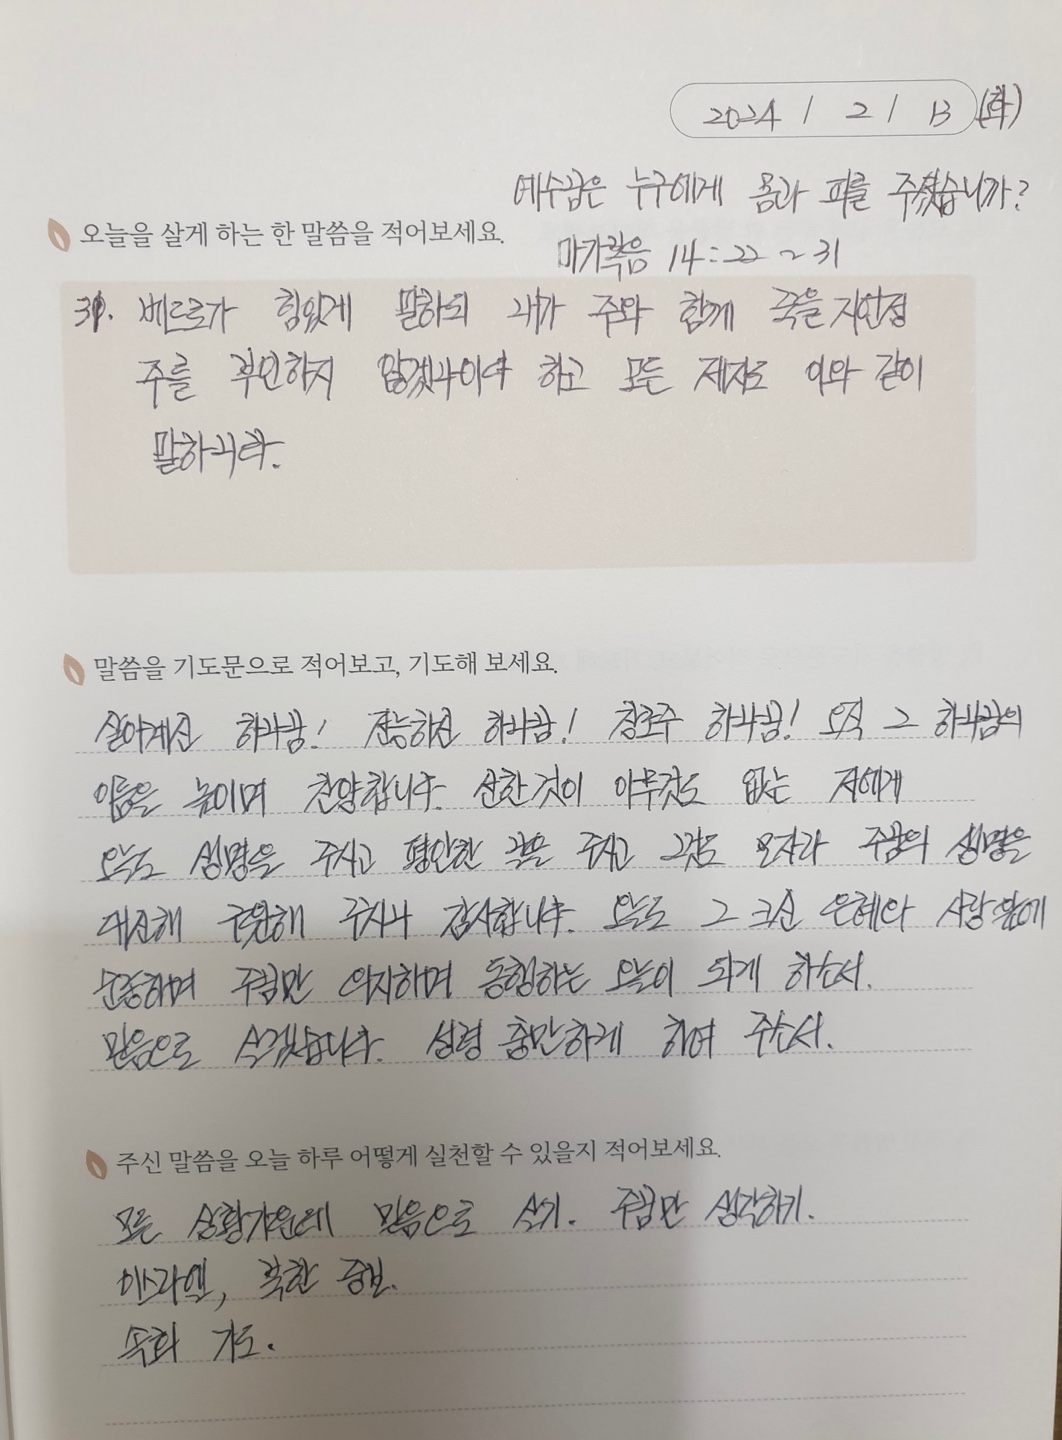 2024 / 2 / 13 (화)
예수님은 누구에게 몸과 피를 주셨습니까?
오늘을 살게 하는 한 말씀을 적어보세요.
마가복음 14:22~31
31. 베드로가 힘있게 말하되 내가 주와 함께 죽을지언정
주를 부인하지 않겠나이다 하고 모든 제자도 이와 같이
말하니라.
말씀을 기도문으로 적어보고, 기도해 보세요.
살아계신 하나님! 전능하신 하나님! 창조주 하나님! 오직 그 하나님의
이름을 높이며 찬양합니다. 선한것이 아무것도 없는 저에게
오늘도 생명을 주시고 평안한 주시고 그것도 모자라 주님의 생명을
대신해 구원해 주시니 감사합니다. 오늘도 그 크신 은혜와 사랑 앞에
순종하며 주님만 의지하며 동행하는 오늘이 되게 하소서.
믿음으로 살겠습니다. 성령 충만하게 하여 주소서.
주신 말씀을 오늘 하루 어떻게 실천할 수 있을지 적어보세요.
모든 상황가운데 믿음으로 살기. 주님만 생각하기.
이스라엘, 북한 중보.
속회 기도.